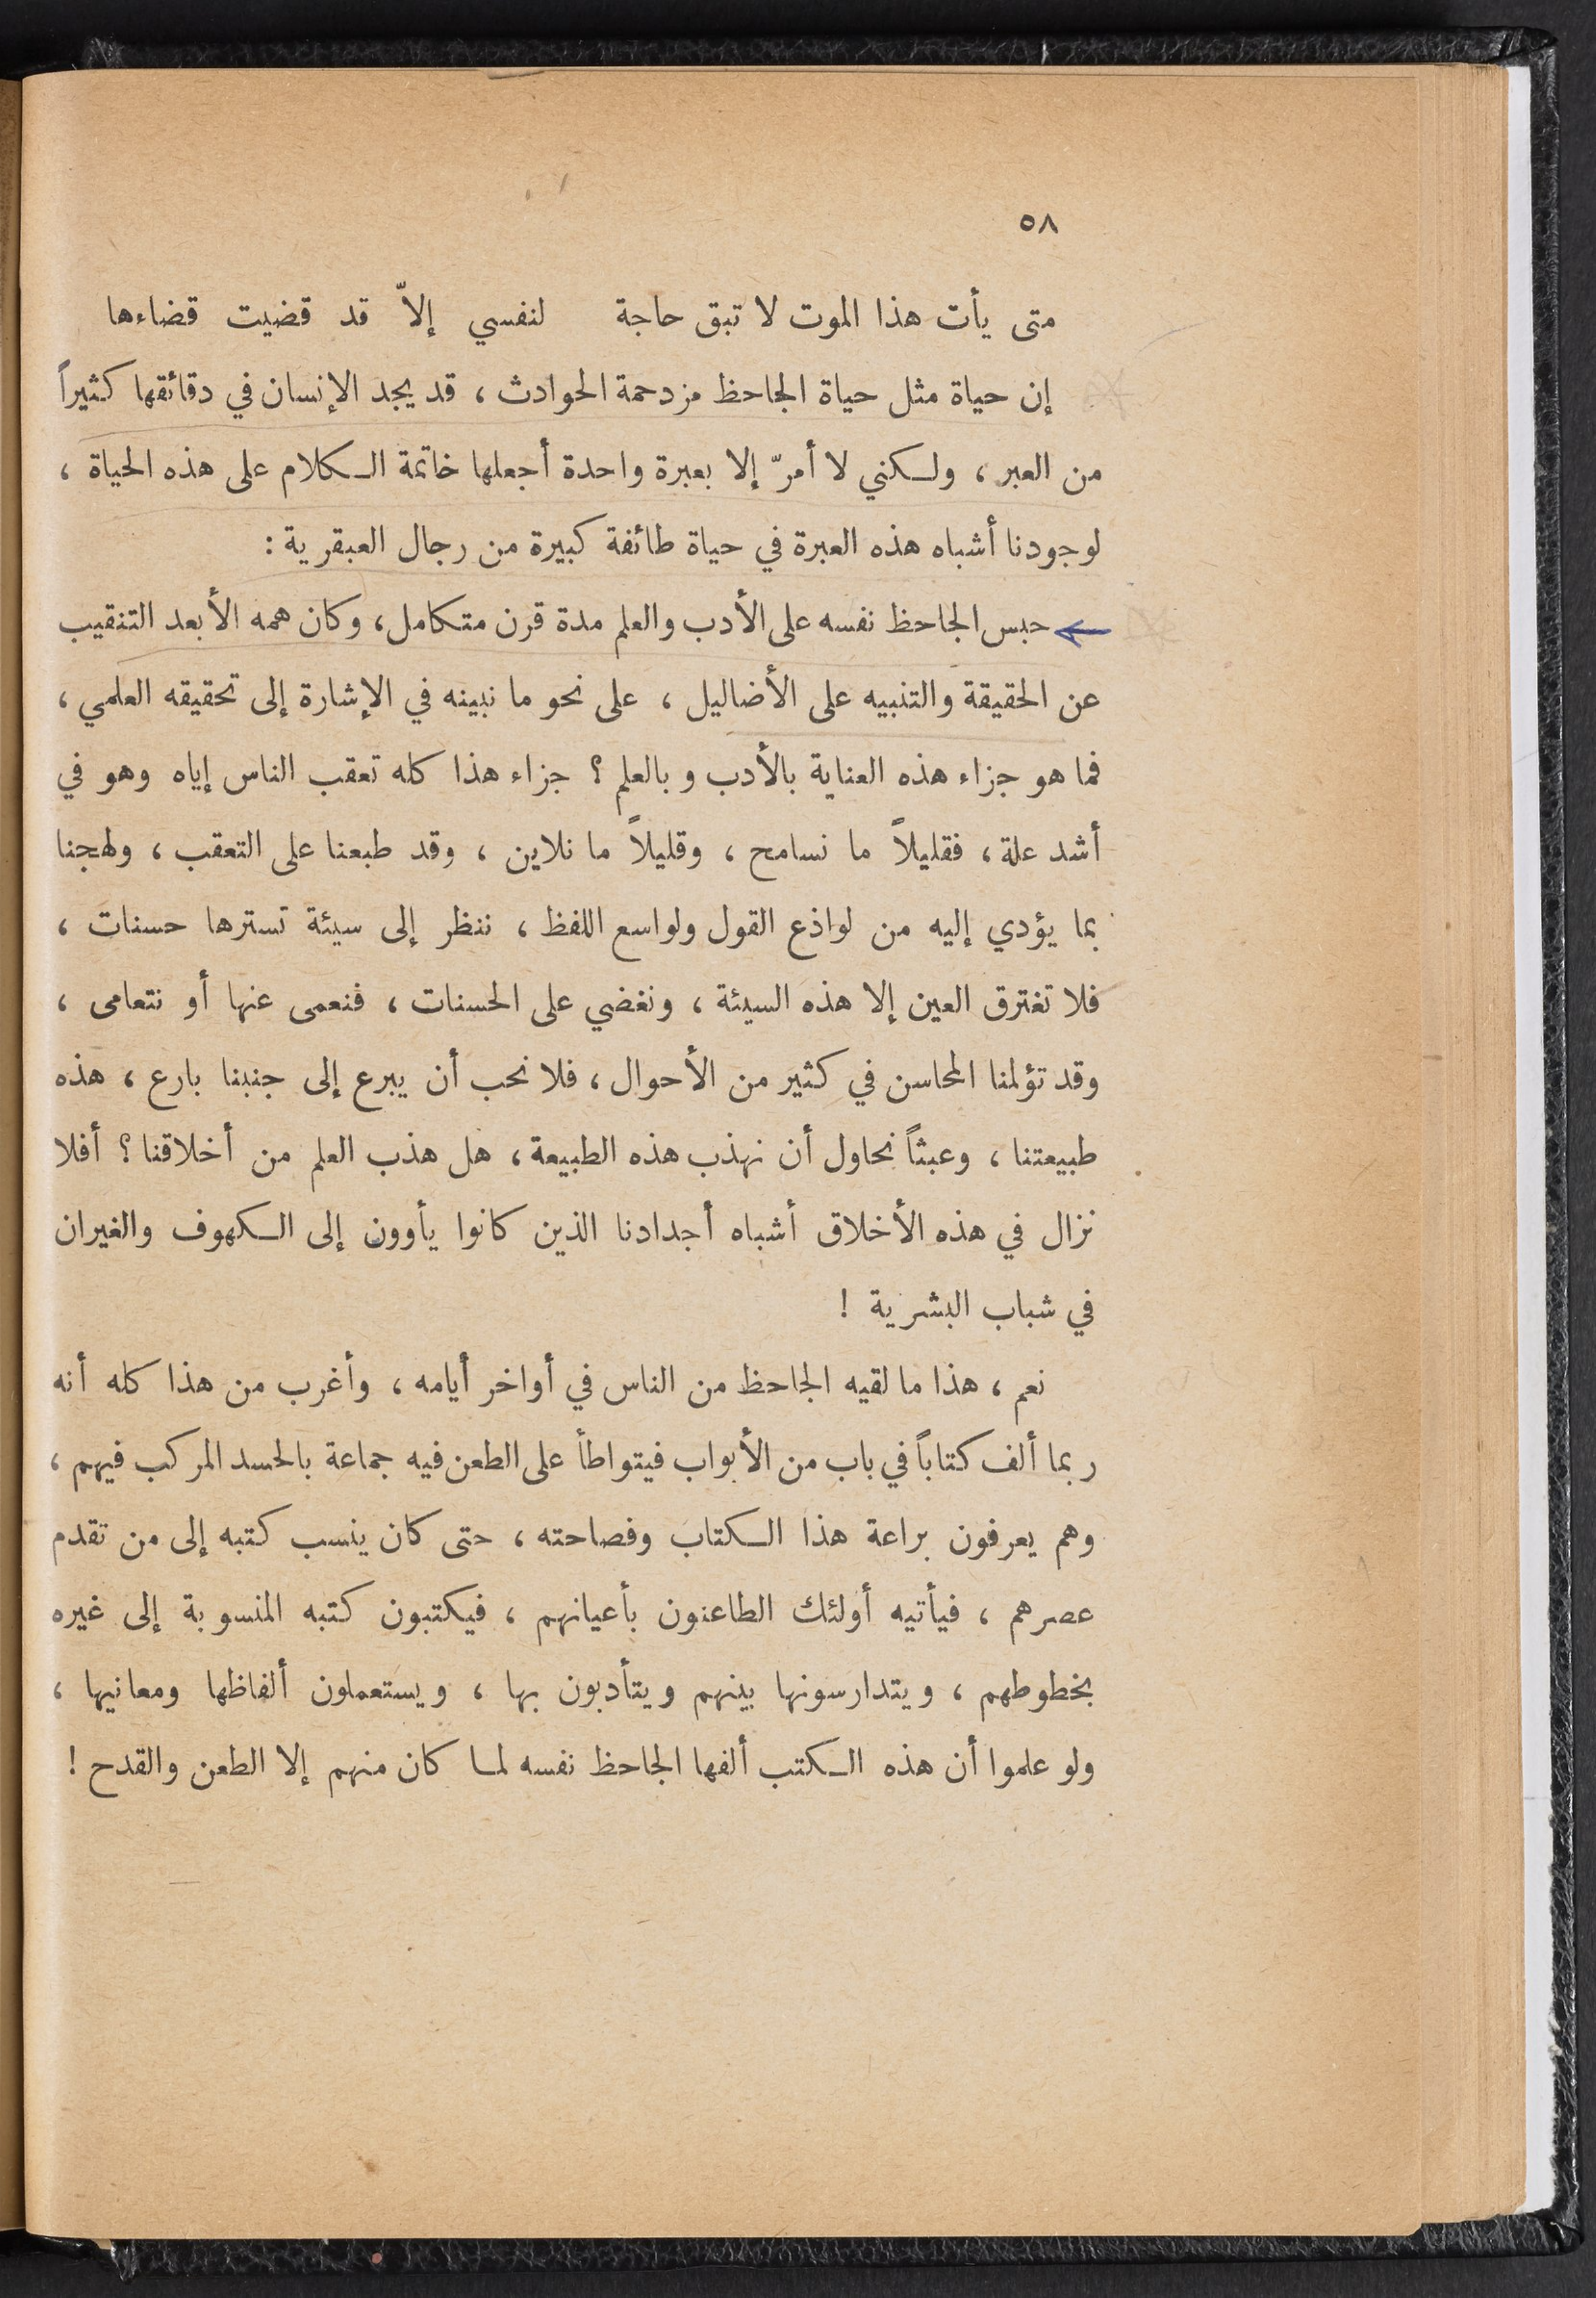 ٥٨
متى يأت هذا الموت لا تبق حاجة لنفسي إلاّ قد قضيت قضاءها
إن حياة مثل حياة الجاحظ مزدحمة الحوادث ، قد يجد الإنسان في دقائقها كثيراً
من العبر ، ولكنني لا أمرّ إلا بعبرة واحدة أجعلها خاتمة الكلام على هذه الحياة ،
لوجودنا أشباه هذه العبرة في حياة طائفة كبيرة من رجال العبقرية :
حبس الجاحظ نفسه على الأدب والعلم مدة قرن متكامل ، وكان همه الأبعد التنقيب
عن الحقيقة والتنبيه على الأضاليل ، على نحو ما نبينه في الإشارة إلى تحقيقه العلمي ،
فما هو جزاء هذه العناية بالأدب وبالعلم ؟ جزاء هذا كله تعقب الناس إياه وهو في
أشد علة ، فقليلاً ما نسامح ، وقليلاً ما نلاين ، وقد طبعنا على التعقب ، ولهجنا
بما يؤدي إليه من لواذع القول ولواسع اللفظ ، ننظر إلى سيئة تسترها حسنات ،
فلا تغترق العين إلا هذه السيئة ، ونغضي على الحسنات ، فنعمى عنها أو نتعامى ،
وقد تؤلمنا المحاسن في كثير من الأحوال ، فلا نحب أن يبرع إلى جنبنا بارع ، هذه
طبيعتنا ، وعبثاً نحاول أن نهذب هذه الطبيعة ، هل هذب العلم من أخلاقنا ؟ أفلا
نزال في هذه الأخلاق أشباه أجدادنا الذين كانوا يأوون إلى الكهوف والغيران
في شباب البشرية !
نعم ، هذا ما لقيه الجاحظ من الناس في أواخر أيامه ، وأغرب من هذا كله أنه
ربما ألف كتاباً في باب من الأبواب فيتواطأ على الطعن فيه جماعة بالحسد المركب فيهم ،
وهم يعرفون براعة هذا الكتاب وفصاحته ، حتى كان ينسب كتبه إلى من تقدم
عصرهم ، فيأتيه أولئك الطاعنون بأعيانهم ، فيكتبون كتبه المنسوبة إلى غيره
بخطوطهم ، ويتدارسونها بينهم ويتأدبون بها ، ويستعملون ألفاظها ومعانيها ،
ولو علموا أن هذه الكتب ألفها الجاحظ نفسه لما كان منهم إلا الطعن والقدح !